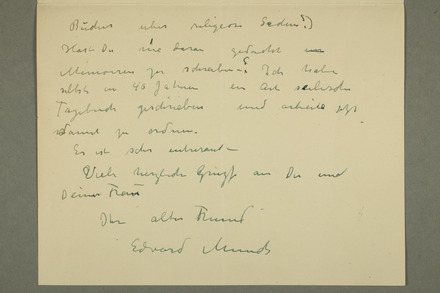 Bücher über religiøse Seden?)
Hast Du nie daran gedacht
Memoiren zu schreiben? Ich habe
selbst in 40 Jahren ein Art seelische
Tagebuch geschrieben und arbeite jetzt
damit zu ordnen.
Es ist sehr interessant
Viele herzliche Grüsse an Du und
Deiner Frau
Dein alter Freund
Edvard Munch